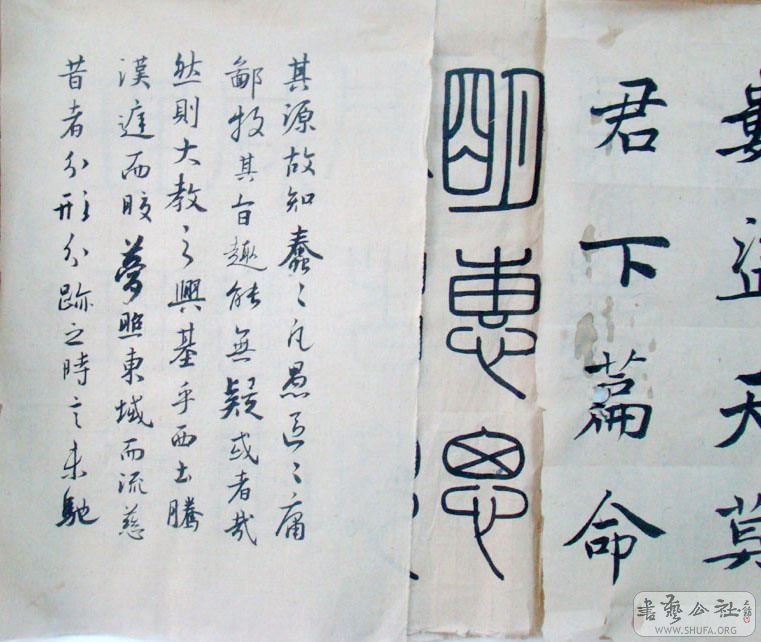 天莫
君下篇命
明惠思
其源故知蠢〻凡愚區〻庸
鄙投其旨趣能無疑或者哉
然則大教之興基乎西土騰
漢庭而皎夢照東域而流慈
昔者分形分跡之時言未馳
書藝公社
WWW.SHUFA.ORG